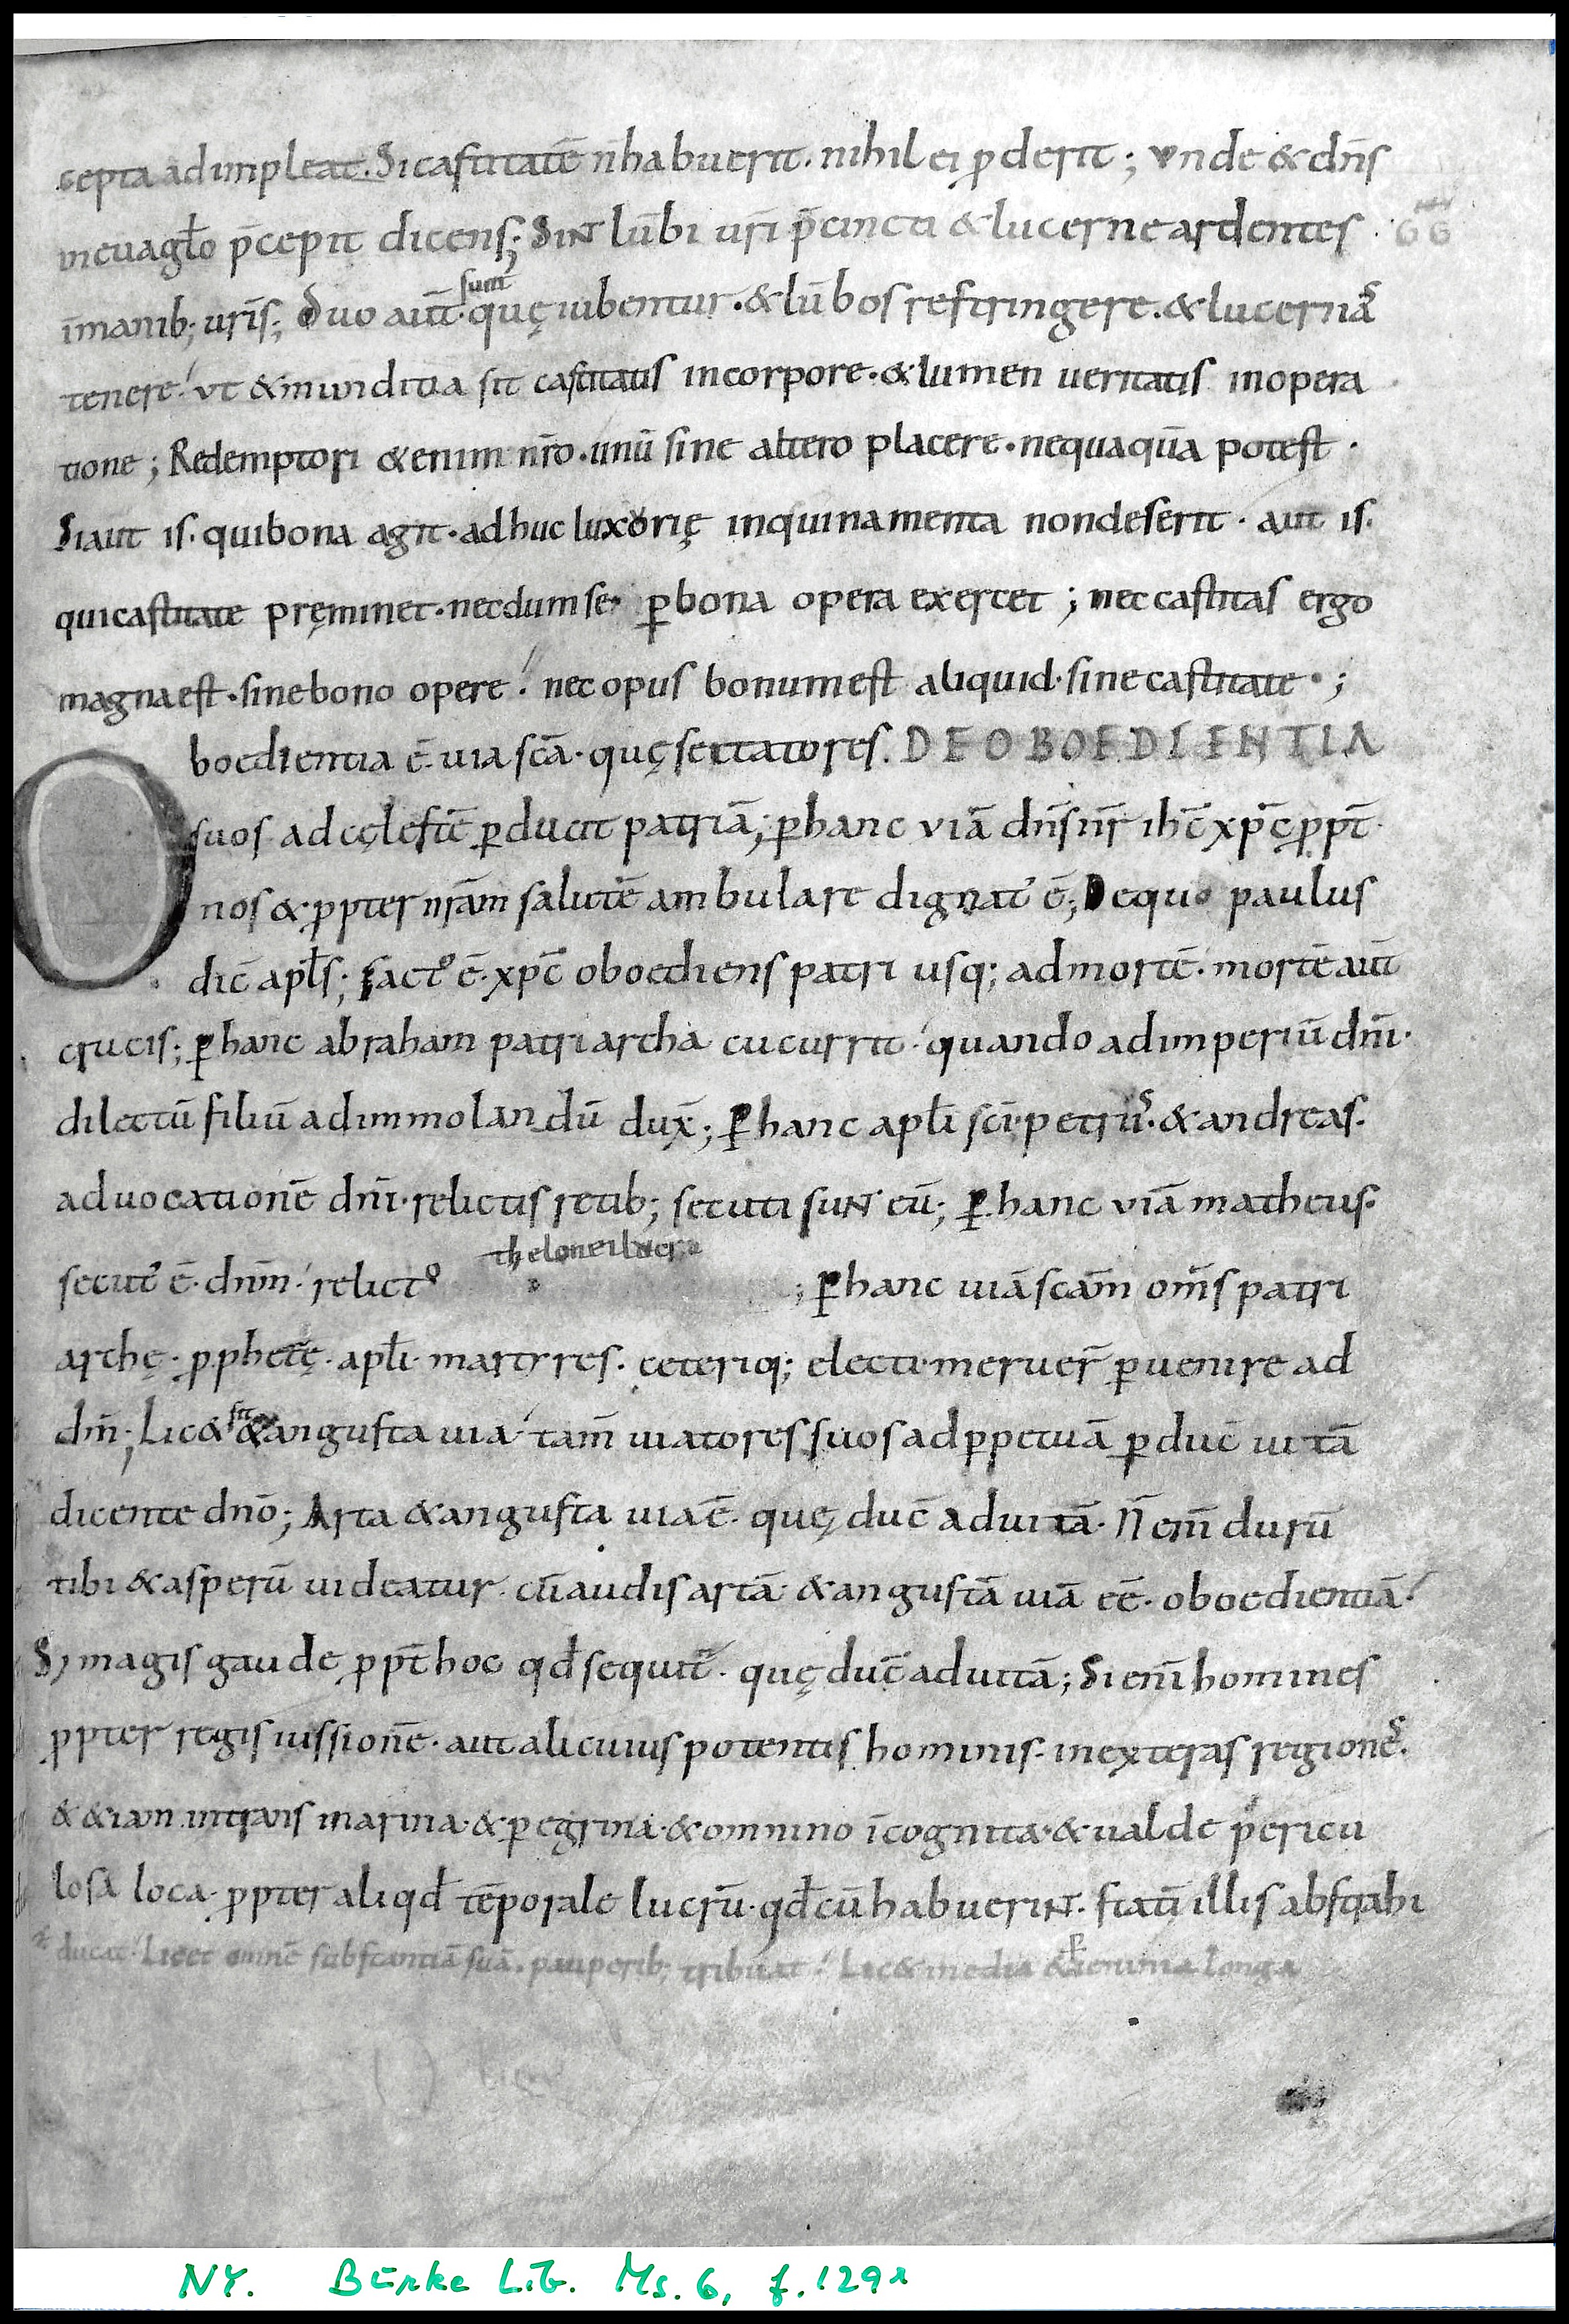 cepta adimpleat. Si castitatē n̄ habuerit. nihil ei ꝓderit; Vnde & dn̄s
in euagło p̄cepit dicens; SiNt lūbi uri p̄cincti & lucerne ardentes. GG
ī manib; uris; Duo aūt sunt quę iubentur. & lūbos restringere. & lucernas
tenere. ut & munditia sit castitatis in corpore. & lumen ueritatis in opera
tione; Redemptori &enim nr̄o. unū sine altero placere. nequaquā potest.
Si aut is. qui bona agit. adhuc luxorię inquinamenta non deserit. aut is.
qui castitate pręminet. necdum se ꝑ bona opera exercet; nec castitas ergo
magna est. sine bono opere. nec opus bonum est aliquid. sine castitate.;
Oboedientia ē uia scā. quę sectatores. DE OBOEDIENTIA
suos ad cęlestē ꝑducit patriā; ꝑ hanc viā dn̄s nr̄ ihc̄ xpc̄ ꝓpt̄
nos & ꝓpter nrām salutē ambulare dignat' ē; De quo paulus
dic̄ apłs; Fact' ē. xpc̄ oboediens patri usq; ad mortē. mortē aūt
crucis; ꝑ hanc abraham patriarcha cucurrit. quando ad imperiū dn̄i.
dilectū filiū ad immolandū dux̄; ꝑ hanc apłi sci. petrus. & andreas.
ad uocationē dn̄i. relictis retib; secuti suNt eū; ꝑ hanc viā matheus.
secut' ē. dn̄m. relict' thelonei lucr ; ꝑ hanc uiā scām om̄s patri
archę. ꝓphetę. apłi. martyres. ceteriq; electi. meruer̄ ꝑuenire ad
dn̄m; Lic& sit & angusta uia. tam̄ uiatores suos ad ꝑpetuā ꝑduc̄ uitā
dicente dn̄o; Arta & angusta uia ē. quę duc̄ ad uitā. N̄ eni̅ durū
tibi & asperū uideatur. cū audis artā & angustā uiā eē. oboedientiā.
S; magis gaude ꝓpt̄ hoc qd̄ sequit̄. quę duc̄ ad uitā; Si eni̅ homines
ꝓpter regis iussionē. aut alicuius potentis hominis. in exteras regiones.
& &iam intrans marina. & ꝑegrina. & omnino īcognita. & ualde pericu
losa loca. ꝓpter aliqd̄ tēporale lucrū. qd̄ cū habueriNt. statī illis abstrahi
ducat. Licet omnē substantiā suā. pauperib; tribuat. Lic& media & ieiunia longa
NY. Burke Lib. Ms. 6, f. 129r